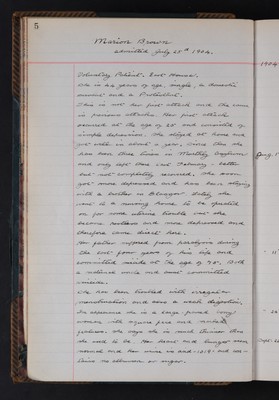 5
Marion Brown
admitted July 25th 1904.
1904
Voluntary Patient. East House.
She is 42 years of age, single, a domestic
servant and a Protestant.
This is not her first attack and she came
in previous attacks. Her first attack
occurred at the age of 25 and consisted of
simple depression. She stayed at home and
got well in about a year. Since then she
has been three times in Montrose Asylum
and only left there last February better
but not completely recovered. She soon
got more depressed and has been staying
with a brother in Glasgow. Lately she
went to a nursing home to be treated
for some uterine trouble but she
became restless and more depressed and
therefore came direct here.
Her father suffered from paralysis during
the last four years of his life and
committed suicide at the age of 70. Both
a maternal uncle and aunt committed
suicide.
She has been troubled with irregular
menstruation and has a weak digestion.
In appearance she is a large
woman with square face and
She says she is much thinner than
she used to be. Her heart and lungs are
normal and her urine is acid: 1018: and con-
tains no albumen or sugar.
Aug. 1
" 11
" 26
Sept. 26